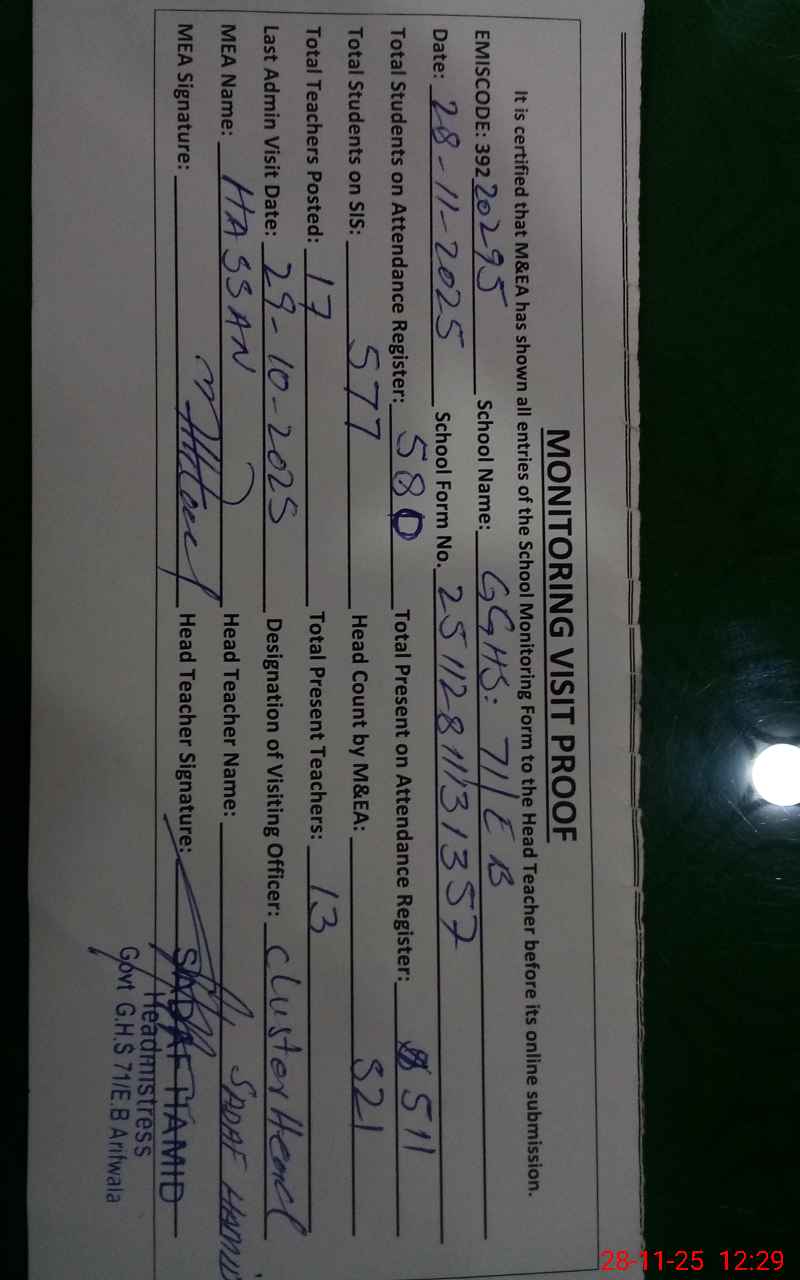 MONITORING VISIT PROOF
It is certified that M&EA has shown all entries of the School Monitoring Form to the Head Teacher before its online submission.
EMISCODE: 39220295 School Name: GGHS: 71/EB
Date: 28-11-2025 School Form No. 25112811131357
Total Students on Attendance Register: 580 Total Present on Attendance Register: 511
Total Students on SIS: 577 Head Count by M&EA: 521
Total Teachers Posted: 17 Total Present Teachers: 13
Last Admin Visit Date: 29-10-2025 Designation of Visiting Officer: Cluster Head
MEA Name: HASSAN Head Teacher Name: SADAF HAMID
MEA Signature: Head Teacher Signature:
SADAF HAMID
Headmistress
Govt G.H.S 71/E.B Arifwala
28-11-25 12:29